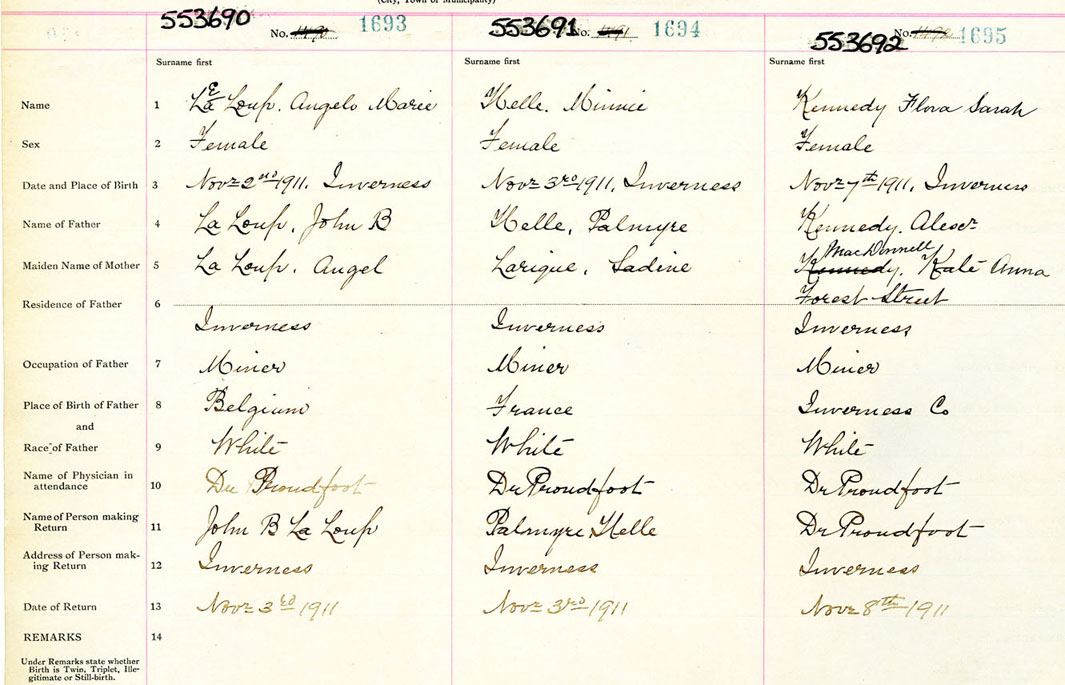 (City, Town or Municipality)
553690 No. 1693 553691 No. 1694 553692 No. 1695
Surname first Surname first Surname first
Name 1 Le Loup. Angelo Marie Helle. Minnie Kennedy Flora Sarah
Sex 2 Female Female Female
Date and Place of Birth 3 Nov 2nd 1911. Inverness Nov 3rd 1911, Inverness Nov 7th 1911, Inverness
Name of Father 4 La Loup, John B Helle, Palmyre Kennedy. Alexr
MacDonnell
Maiden Name of Mother 5 La Loup. Angel Larique, Sadine Kennedy. Kate Anna
Residence of Father 6 Forest Street
Inverness Inverness Inverness
Occupation of Father 7 Miner Miner Miner
Place of Birth of Father 8 Belgium France Inverness Co
and
Race of Father 9 White White White
Name of Physician in
attendance 10 Dr Proudfoot Dr Proudfoot Dr Proudfoot
Name of Person making
Return 11 John B La Loup Palmyre Helle Dr Proudfoot
Address of Person mak-
ing Return 12 Inverness Inverness Inverness
Date of Return 13 Nov 3rd 1911 Nov 3rd 1911 Nov 8th 1911
REMARKS 14
Under Remarks state whether
Birth is Twin, Triplet, Ille-
gitimate or Still-birth.